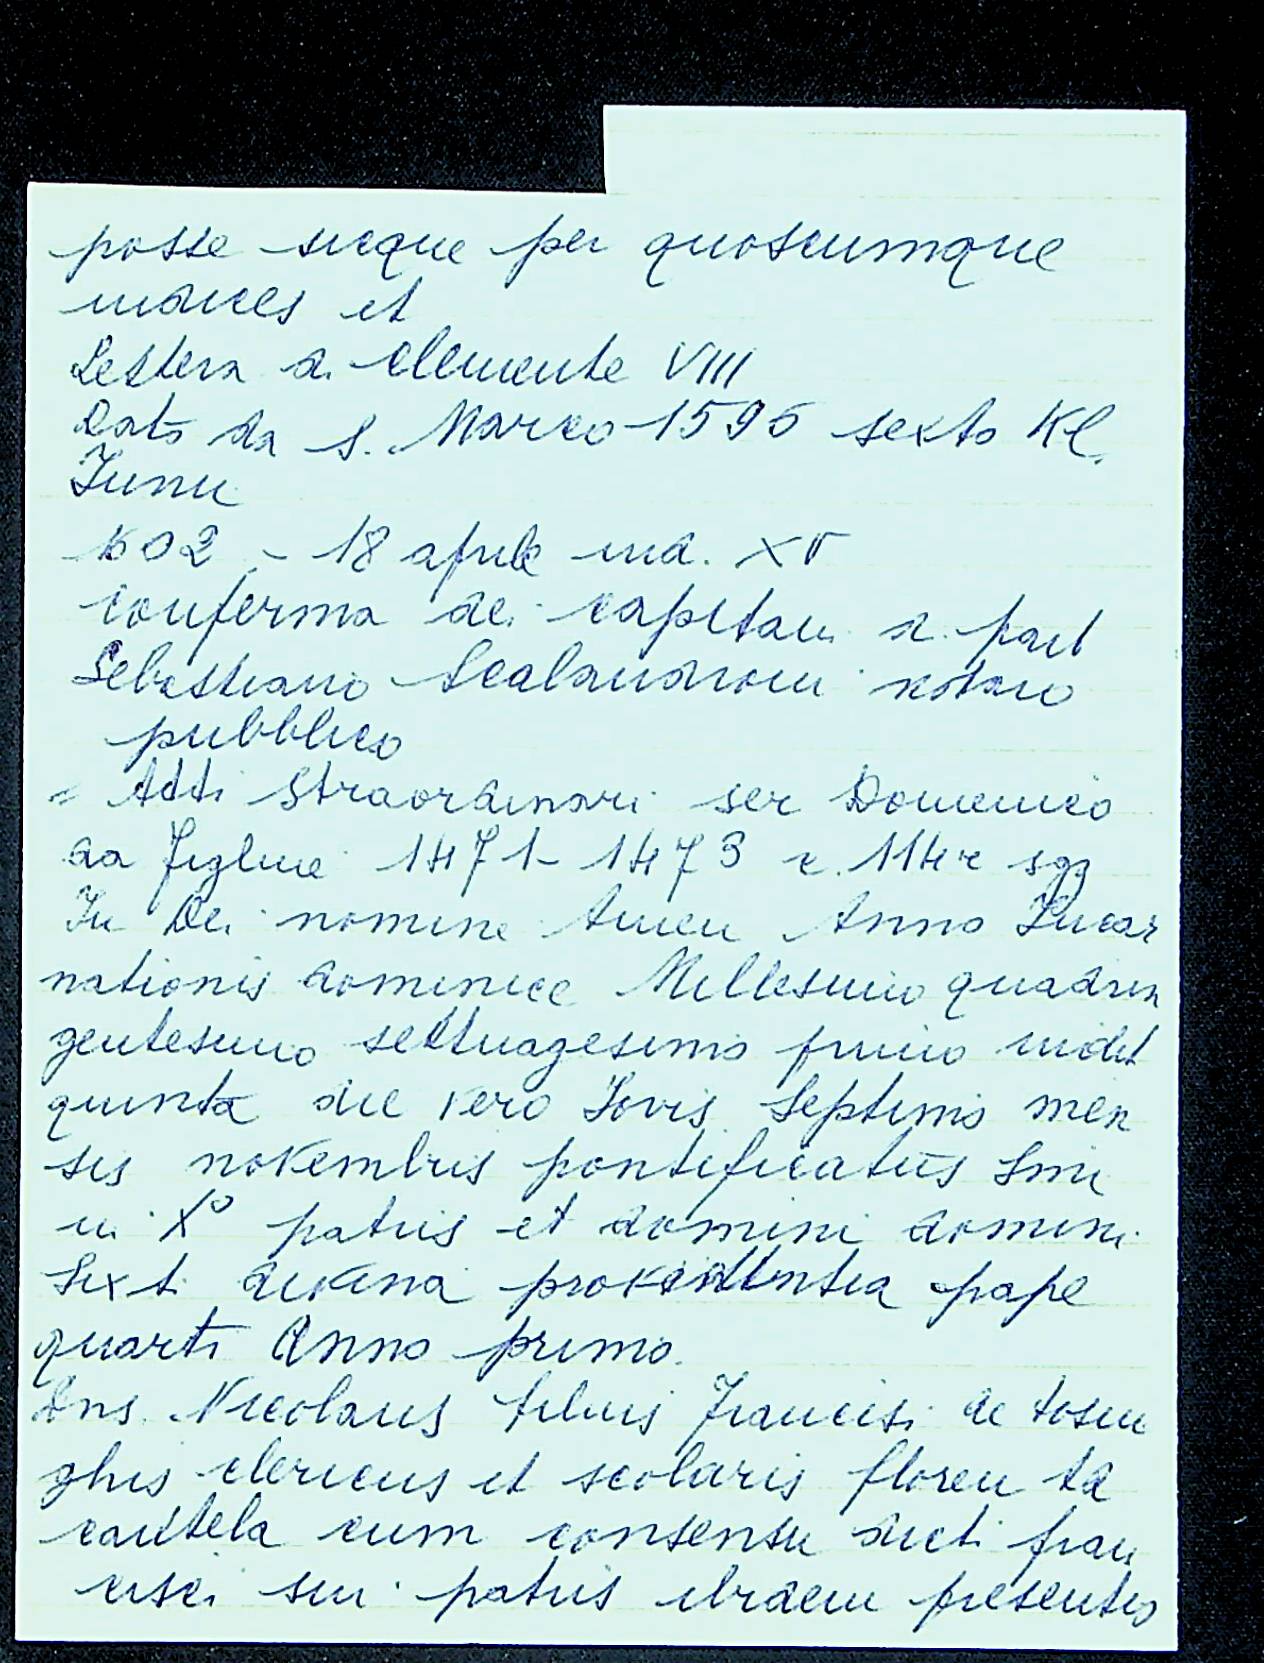 posse sicque per quoscumque
iudices et
Lettera di Clemente VIII
Data da S. Marco 1595 sexto Kl.
Iunii
1602 - 18 aprile ind. XV
conferma dei capitoli
Sebastiano notaio
pubblico
= Atti Straordinari ser Domenico
da Figline 1471-1473 c. 114r sgg
In Dei nomine Amen Anno Incar
nationis dominice Millesimo quadrin
gentesimo settuagesimo primo indit
quinta die vero Iovis Septimo men
sis novembris pontificatus Smi
in Xo patris et domini domini
Sixti divina providentia pape
quarti Anno primo.
Dns. Nicolaus filius Francisi de tosin
ghis clericus et scolaris floren
cautela cum consensu dicti fran
cisci sui patris ibidem presentis